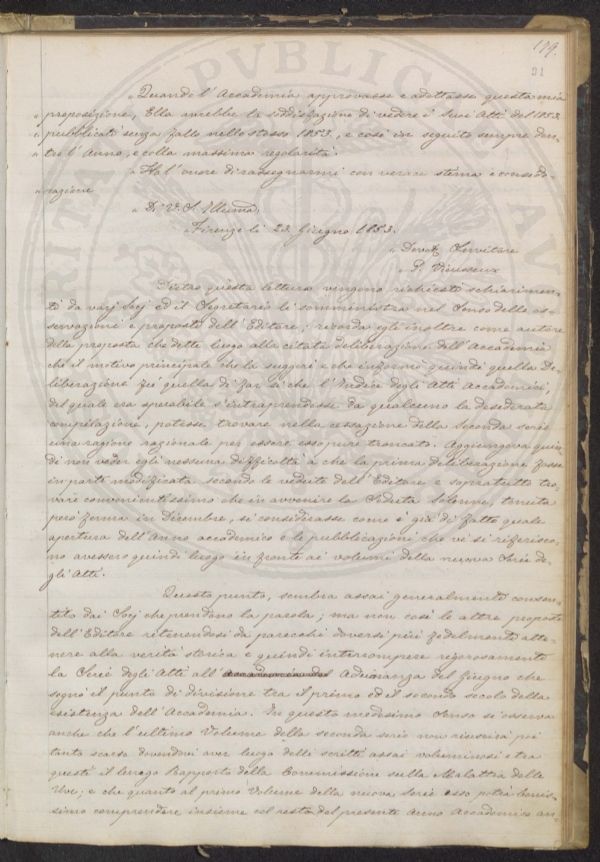 199.
91
„ Quando l'Accademia approvasse e adottasse questa mia
„ proposizione, Ella avrebbe la soddisfazione di vedere i Suoi Atti del 1852
„ pubblicati senza fallo nello stesso 1853, e così in seguito sempre den-
„ tro l'Anno, e colla massima regolarità.
„ Ho l'onore di rassegnarmi con verace stima e conside-
„ razione
„ Di V. S. Illuma.
Firenze li 23. Giugno 1853.
„ Devotmo Servitore
„ P. Vieusseux
Dietro questa lettera vengono richiesti schiarimen-
ti da varj Socj ed il Segretario li somministra nel senso delle os-
servazioni e proposte dell'Editore; ricorda egli inoltre come autore
della proposta che dette luogo alla citata deliberazione dell'Accademia
che il motivo principale che la suggerì e che informò quindi quella De-
liberazione fu quella di far sì che l'Indice degli Atti Accademici,
del quale era sperabile s'intraprendesse da qualcuno la desiderata
compilazione, potesse trovare nella cessazione della Seconda serie
una ragione razionale per essere esso pure troncato. Aggiungeva quin-
di non veder egli nessuna difficoltà a che la prima deliberazione fosse
in parte modificata secondo le vedute dell'Editore e sopratutto tro-
vare convenientissimo che in avvenire la Seduta Solenne, tenuta
però ferma in Dicembre, si considerasse come è già di fatto quale
apertura dell'Anno accademico e le pubblicazioni che vi si riferisco-
no avessero quindi luogo in fronte ai volumi della nuova Serie de-
gli Atti.
Questo punto, sembra assai generalmente consen-
tito dai Socj che prendono la parola; ma non così le altre proposte
dell'Editore ritenendosi da parecchi doversi più fedelmente atte-
nere alla verità storica e quindi interrompere rigorosamente
la Serie degli Atti all' Adunanza del Giugno che
segnò il punto di divisione tra il primo ed il secondo secolo della
esistenza dell'Accademia. In questo medesimo senso si osserva
anche che l'ultimo Volume della seconda serie non riescirà poi
tanto scarso dovendovi aver luogo delli scritti assai voluminosi e tra
questi il lungo Rapporto della Commissione sulla Malattia delle
Uve; e che quanto al primo Volume della nuova Serie esso potrà benis-
simo comprendere insieme col resto del presente Anno Accademico an